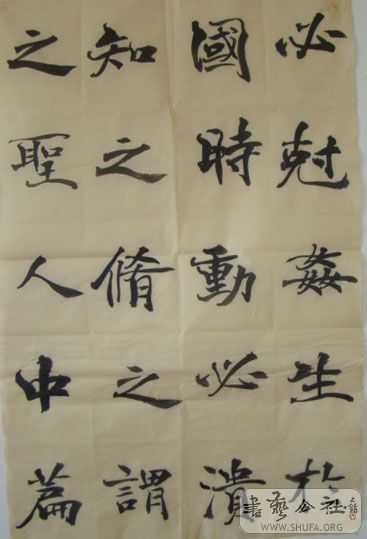 必尅姦生於
國時動必潰
知之脩之謂
之聖人中篇
書藝公社
WWW.SHUFA.ORG